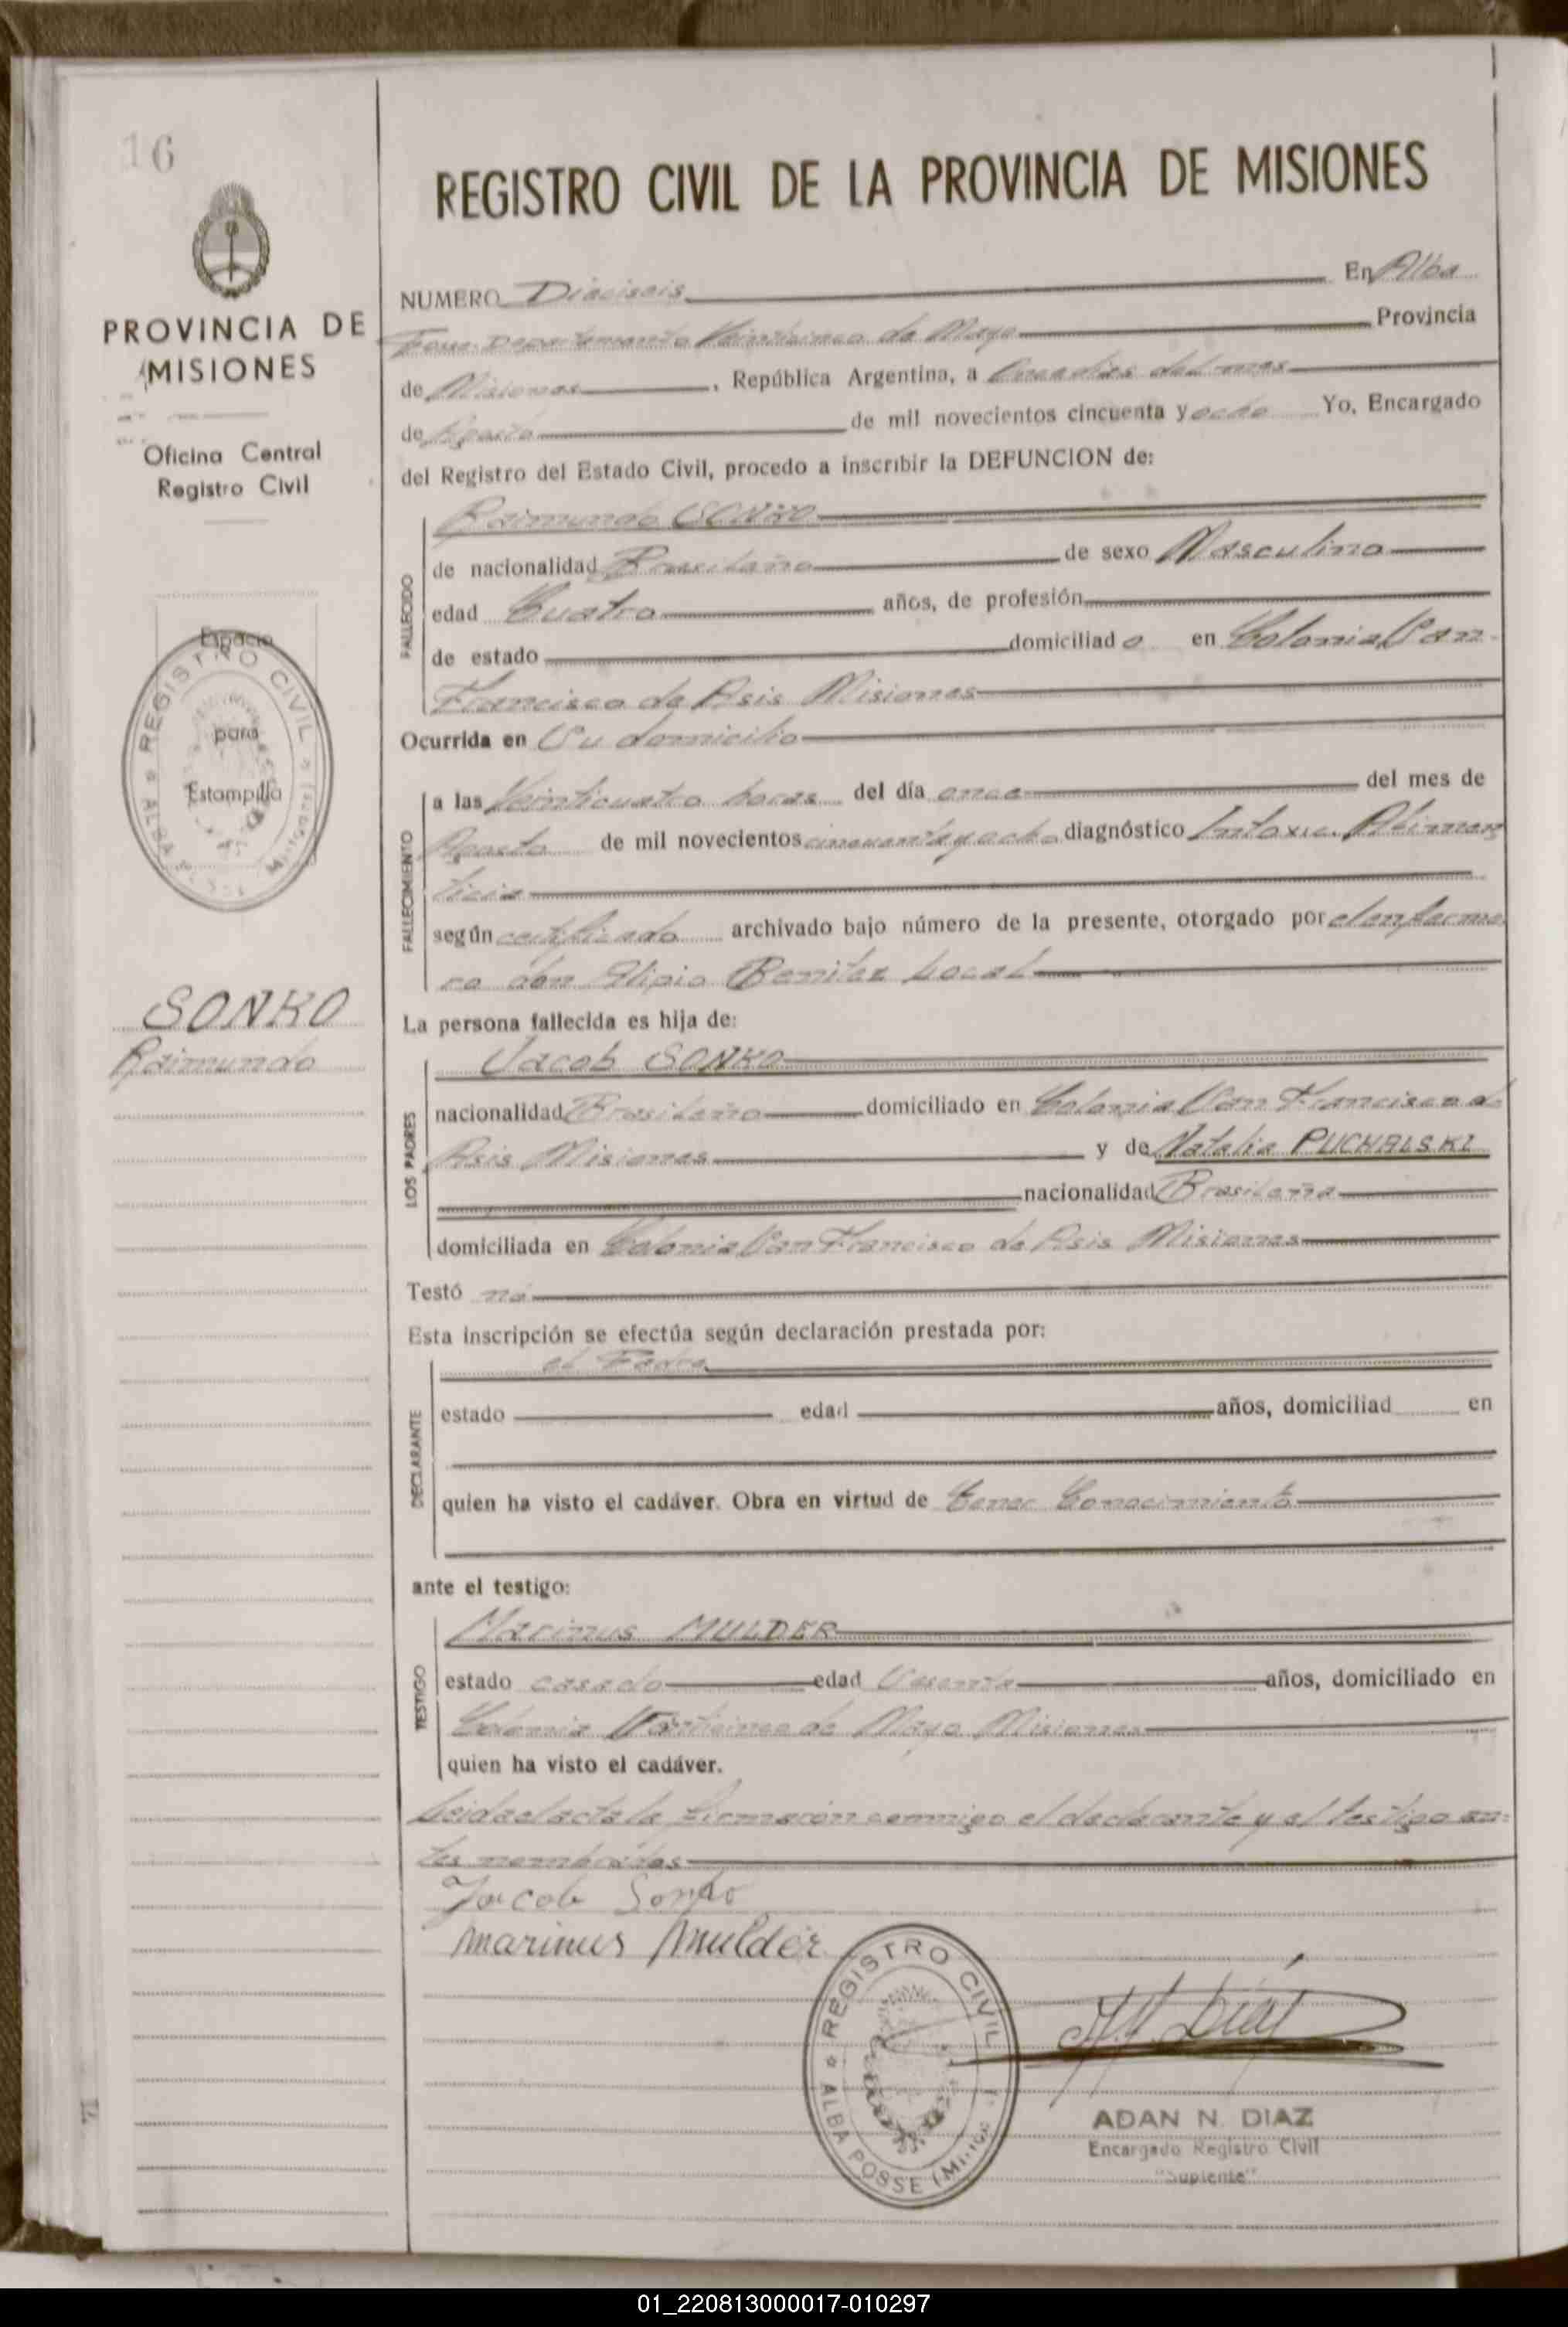 16
PROVINCIA DE
MISIONES
Oficina Central
Registro Civil
Espacio
para
Estampilla
REGISTRO CIVIL
ALBA
SONKO
Raimundo
REGISTRO CIVIL DE LA PROVINCIA DE MISIONES
NUMERO Dieciseis En Alba
Posse Departamento Veinticinco de Mayo Provincia
de Misiones, República Argentina, a Once dias del mes
de Agosto de mil novecientos cincuenta y ocho Yo, Encargado
del Registro del Estado Civil, procedo a inscribir la DEFUNCION de:
FALLECIDO
Raimundo SONKO
de nacionalidad Brasileña de sexo Masculino
edad Cuatro años, de profesión
de estado domiciliado en Colonia San
Francisco de Asis Misiones
Ocurrida en Su domicilio
FALLECIMIENTO
a las Veinticuatro horas del día once del mes de
Agosto de mil novecientos cincuenta y ocho diagnóstico Intoxic. Alimen
ticia
según certificado archivado bajo número de la presente, otorgado por el enferme
ro don Alipio Benitez Local
La persona fallecida es hija de:
LOS PADRES
Jacob SONKO
nacionalidad Brasileña domiciliado en Colonia San Francisco d
Asis Misiones y de Natalia PUCHALSKI
nacionalidad Brasileña
domiciliada en Colonia San Francisco de Asis Misiones
Testó no
Esta inscripción se efectúa según declaración prestada por:
DECLARANTE
el Padre
estado edad años, domiciliad en
quien ha visto el cadáver. Obra en virtud de tener Conocimiento
ante el testigo:
TESTIGO
Marinus MULDER
estado casado edad años, domiciliado en
Colonia Veinticinco de Mayo Misiones
quien ha visto el cadáver.
Leida el acta la firmaron conmigo el declarante y el testigo an-
tes nombrados
Jacob Sonko
Marinus Mulder
REGISTRO CIVIL
ALBA POSSE
Diaz
ADAN N. DIAZ
Encargado Registro Civil
"Suplente"
01_220813000017-010297